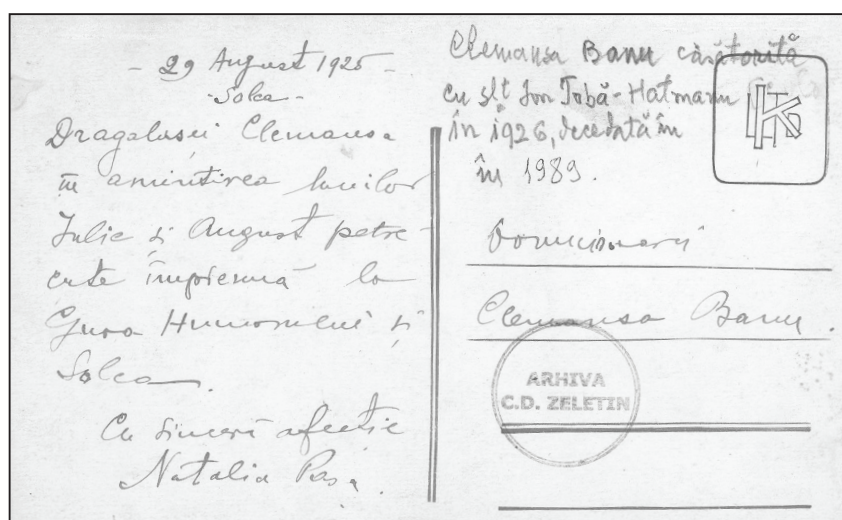 - 29 August 1925 -
- Solca -
Dragalasei Clemansa
în amintirea lunilor
Iulie și August petre-
cute împreună la
Gura Humorului și
Solca.
Cu sinceră afecție
Natalia
Clemansa Banu căsătorită
cu slt Ion Tobă-Hatmanu
în 1926, decedată în
în 1989.
Domnișoarei
Clemansa Banu.
ARHIVA
C.D. ZELETIN